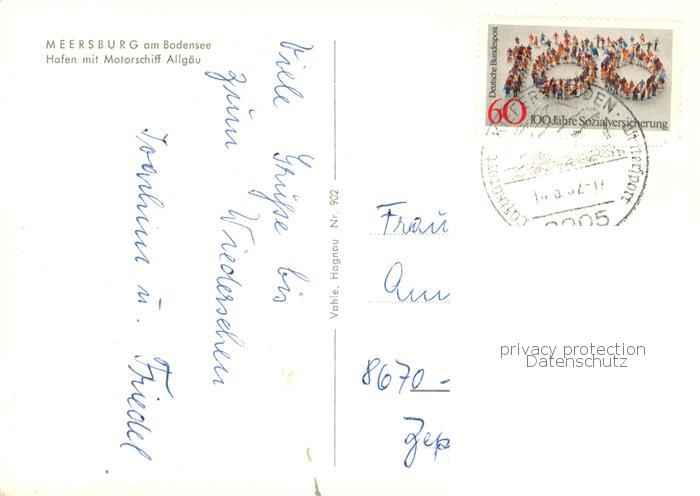 MEERSBURG am Bodensee
Hafen mit Motorschiff Allgäu
Viele Grüße bis
zum Wiedersehen
Joachim u. Friedel.
Vahle, Hagnau Nr. 902
Deutsche Bundespost
60 100 Jahre Sozialversicherung
Luftkurort
Wintersport
Frau
8670 -
Zep
privacy protection
Datenschutz